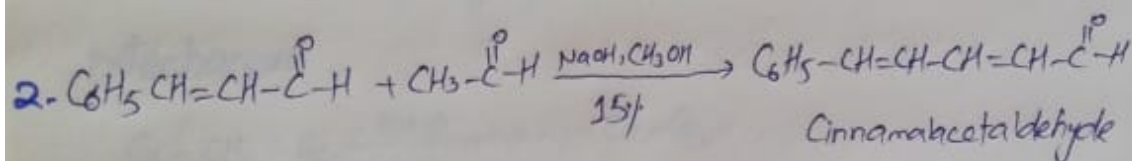 2- C6H5CH=CH-C-H + CH3-C-H NaOH, CH3OH → C6H5-CH=CH-CH=CH-C-H
O O 15% O
Cinnamalacetaldehyde